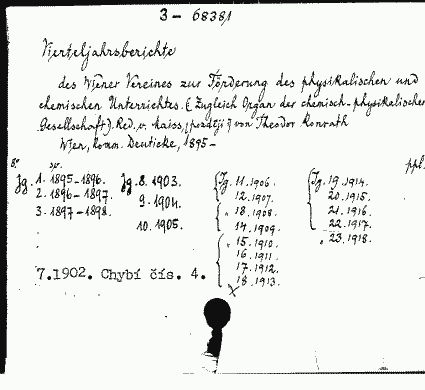 3 - 68381
Vierteljahrsberichte
des Wiener Vereines zur Förderung des physikalischen und
chemischen Unterrichtes. (Zugleich Organ der chemisch-physikalischen
Gesellschaft). Red. v. Haiss, (později) von Theodor Konrath
Wien, komm. Deuticke, 1895-
8° ppl.
Jg. 1. 1895-1896. Jg. 8. 1903. Jg. 11. 1906. Jg. 19. 1914.
2. 1896-1897. 9. 1904. 12. 1907. 20. 1915.
3. 1897-1898. 10. 1905. 13. 1908. 21. 1916.
14. 1909. 22. 1917.
15. 1910. 23. 1918.
16. 1911.
7.1902. Chybí čís. 4. 17. 1912.
18. 1913.